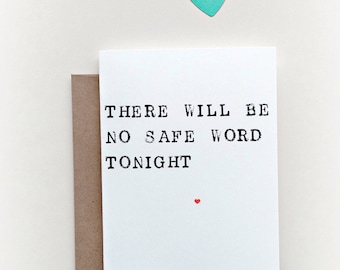 THERE WILL BE
NO SAFE WORD
TONIGHT